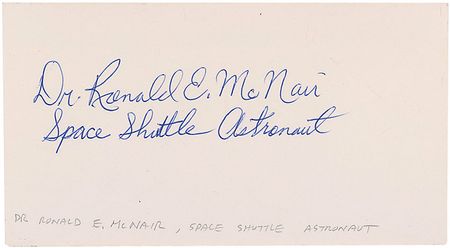 Dr. Ronald E. McNair
Space Shuttle Astronaut
DR RONALD E. MCNAIR , SPACE SHUTTLE ASTRONAUT